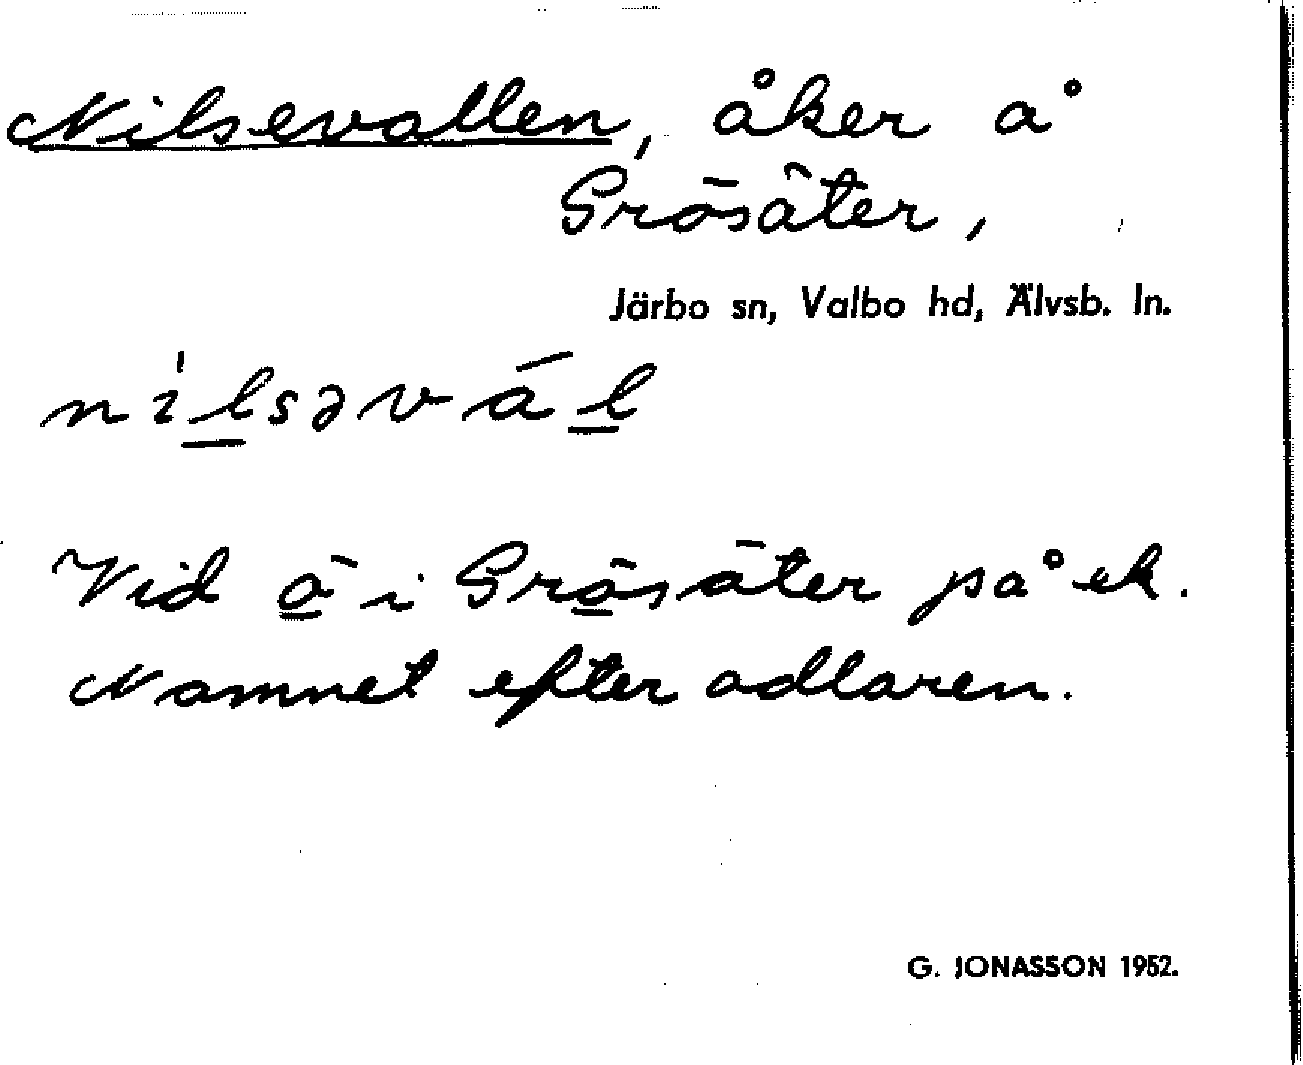 Nilsevallen, åker å
Grösäter,
Järbo sn, Valbo hd, Älvsb. ln.
nìlsəvál
Vid ö i Grösäter på ek.
Namnet efter odlaren.
G. JONASSON 1952.